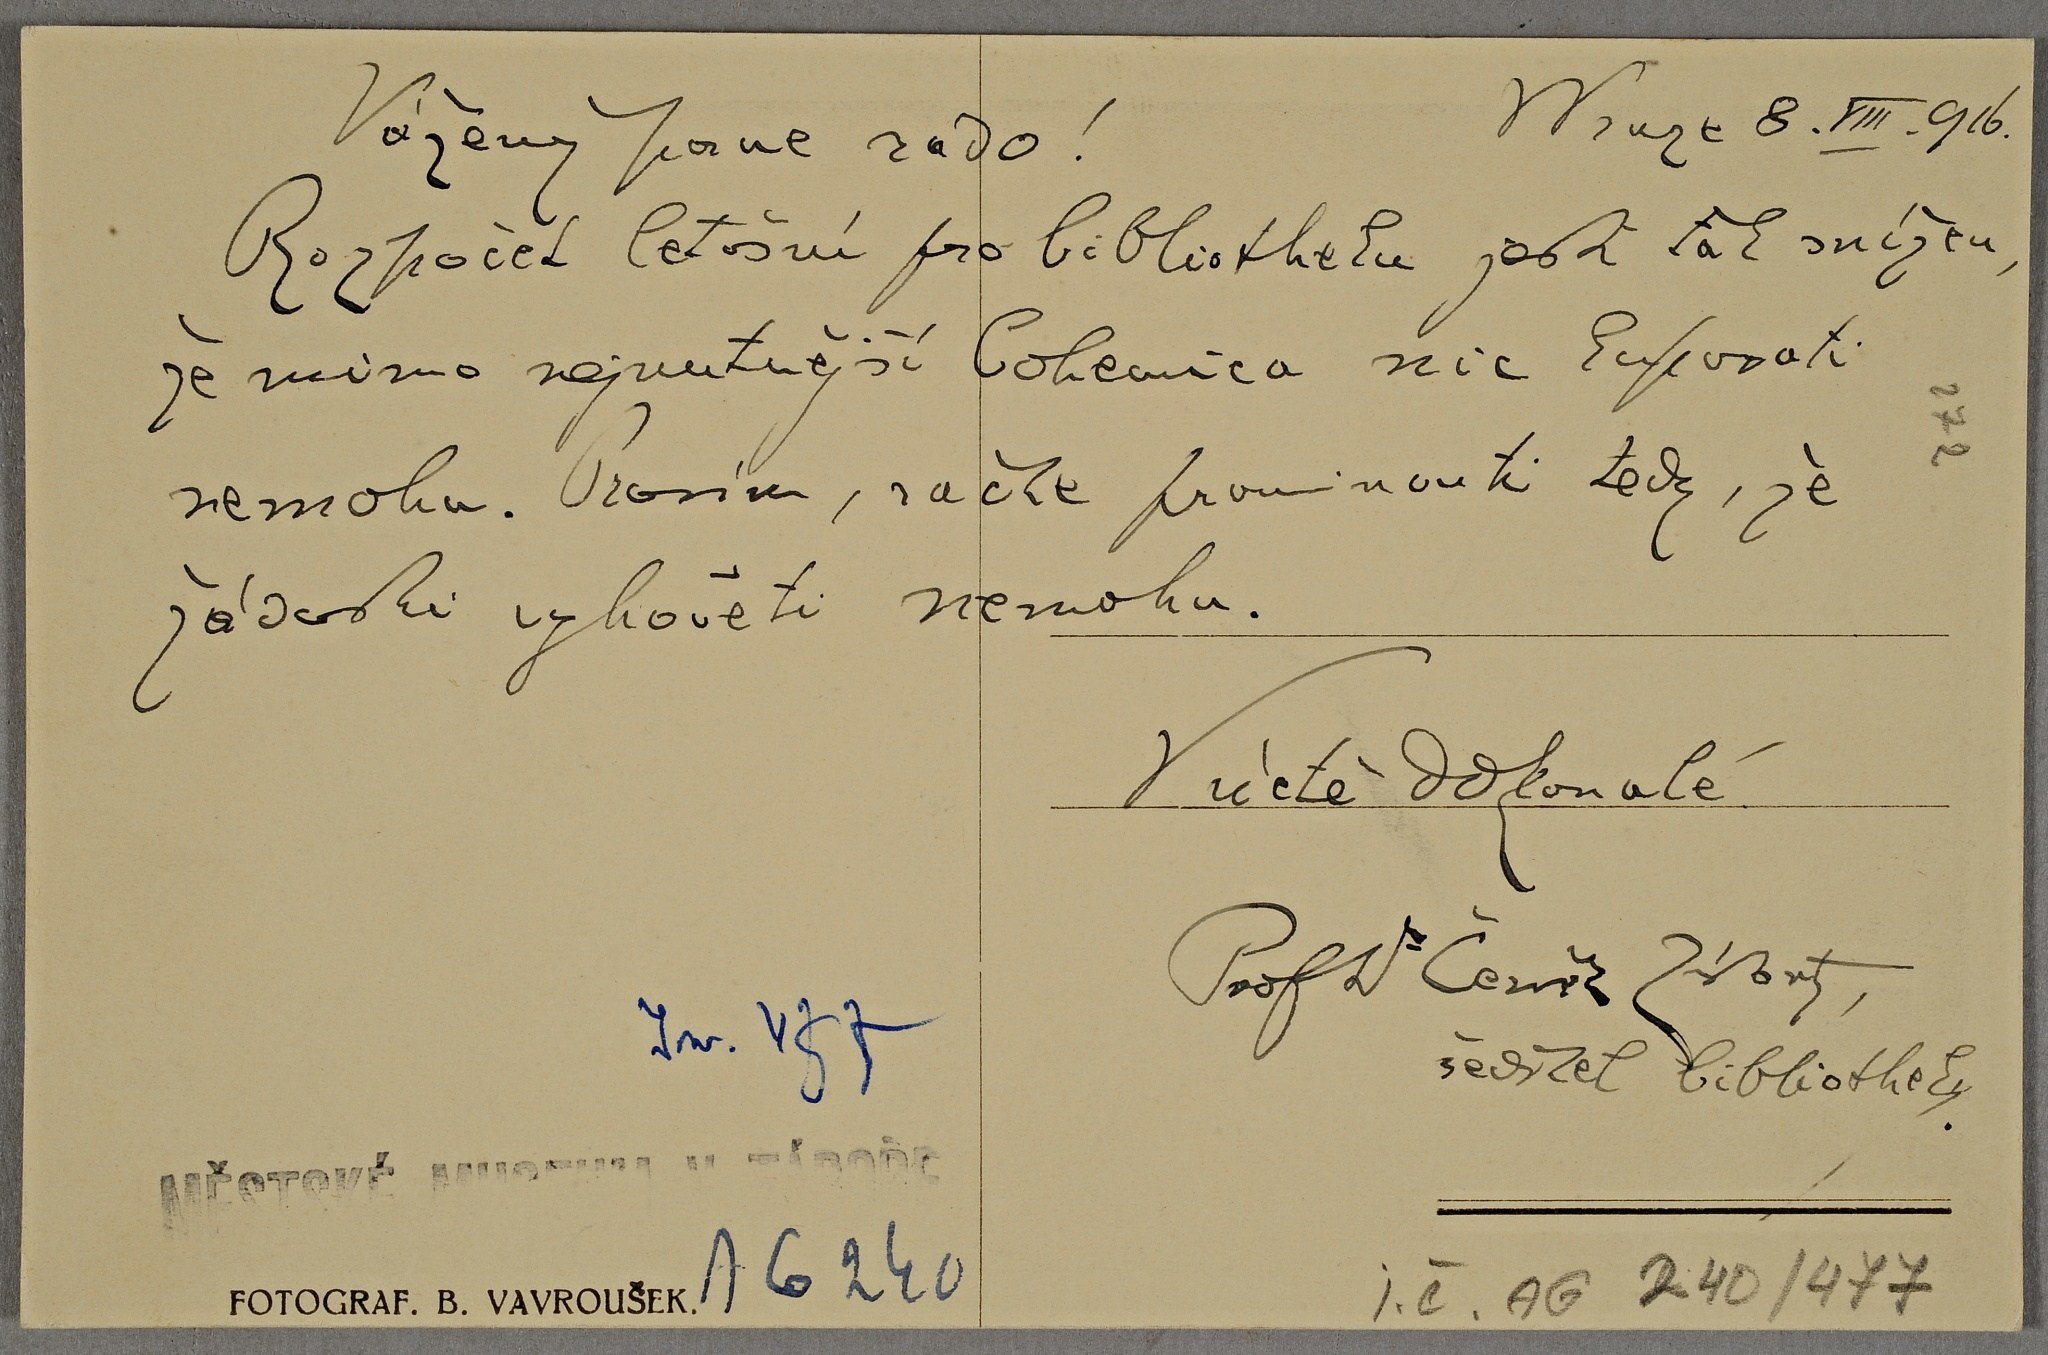 V Praze 8. VIII. 916.
Vážený pane rado!
Rozpočet letošní pro bibliotheku jest tak snížen,
že mimo nejnutnější bohemica nic kupovati
nemohu. Prosím, račte prominouti tedy, že
žádosti vyhověti nemohu.
V úctě dokonalé
Prof Dr Čeněk Zíbrt,
ředitel bibliotheky.
272
Inv. 477
MĚSTSKÉ MUSEUM V TÁBOŘE
AG 240
FOTOGRAF. B. VAVROUŠEK.
i.č. AG 240/477